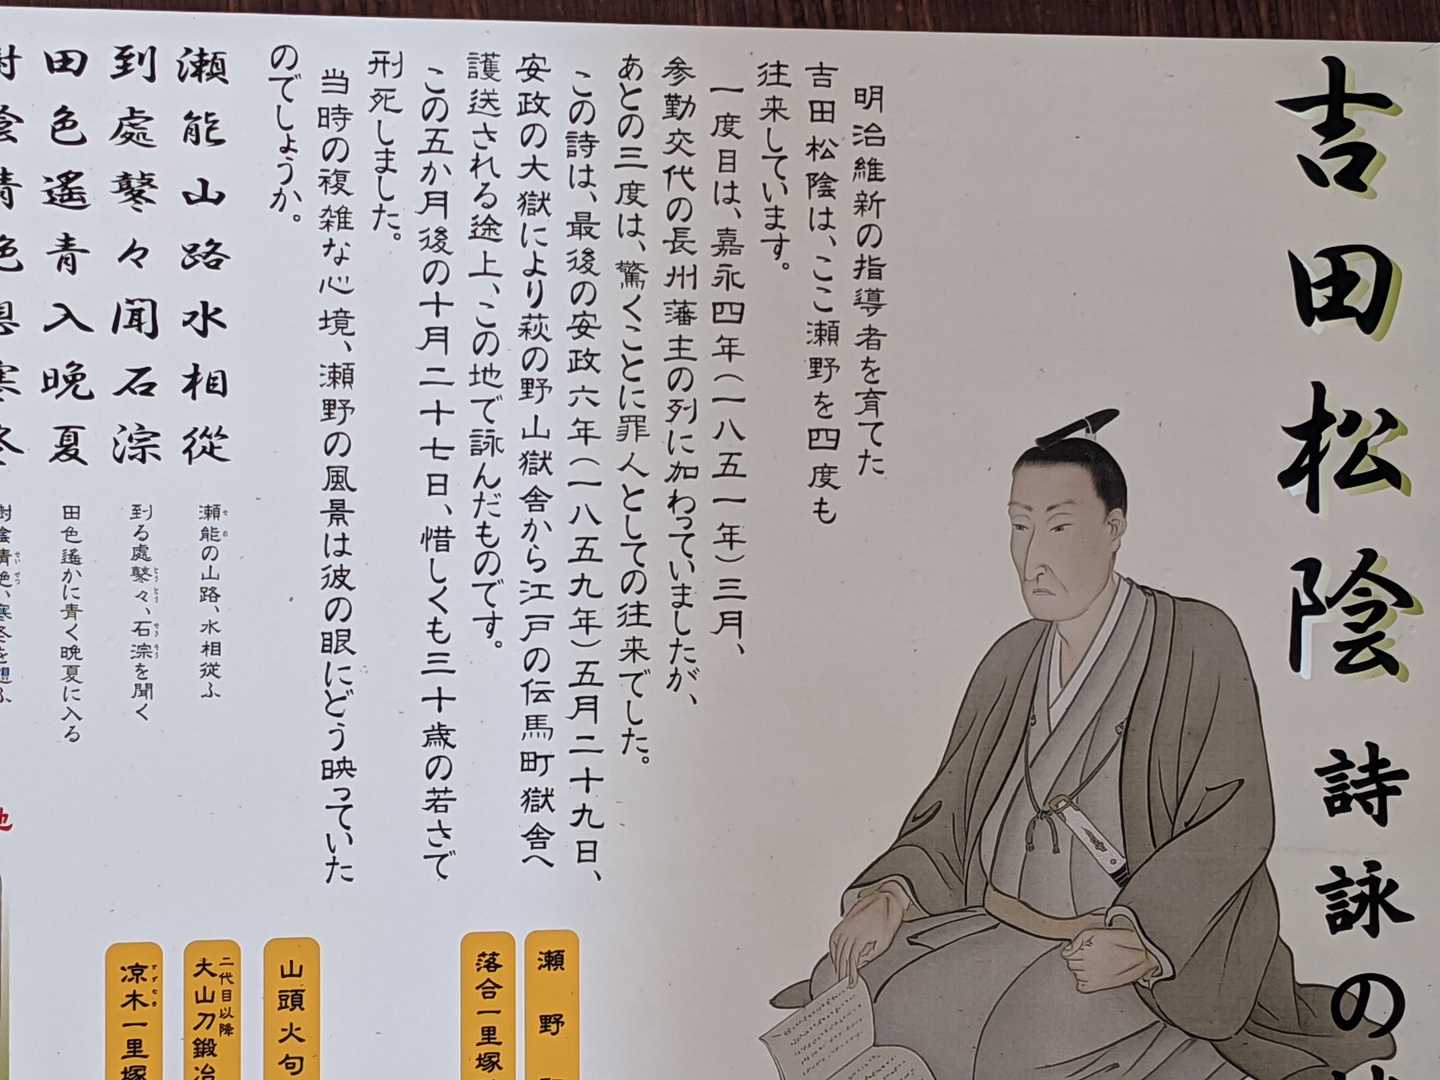 吉田松陰 詩詠の
明治維新の指導者を育てた
吉田松陰は、ここ瀬野を四度も
往来しています。
一度目は、嘉永四年(一八五一年)三月、
参勤交代の長州藩主の列に加わっていましたが、
あとの三度は、驚くことに罪人としての往来でした。
この詩は、最後の安政六年(一八五九年)五月二十九日、
安政の大獄により萩の野山獄舎から江戸の伝馬町獄舎へ
護送される途上、この地で詠んだものです。
この五か月後の十月二十七日、惜しくも三十歳の若さで
刑死しました。
当時の複雑な心境、瀬野の風景は彼の眼にどう映っていた
のでしょうか。
瀬能山路水相從
瀬能の山路、水相従ふ
せの
到處鼕々聞石淙
到る處鼕々、石淙を聞く
とうとう
せきそう
田色遙青入晩夏
田色遙かに青く晩夏に入る
瀬野
落合一里塚
山頭火句
二代目以降
大山刀鍛冶
涼木一里塚
すずむき